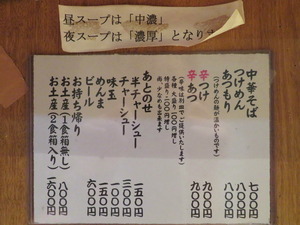 昼スープは「中濃」
夜スープは「濃厚」となります
中華そば 七〇〇
つけめん 八〇〇
あつもり 八〇〇
(つけめんの麺が温かいものです)
辛つけ 九〇〇
辛あつ 九〇〇
(辛味は別皿でご提供いたします)
あとのせ
半チャーシュー 一五〇
チャーシュー 三〇〇
味玉 一〇〇
めんま 一五〇
ビール 六〇〇
お持ち帰り
お土産(1食箱無し) 八〇〇
お土産(2食箱入り) 一六〇〇